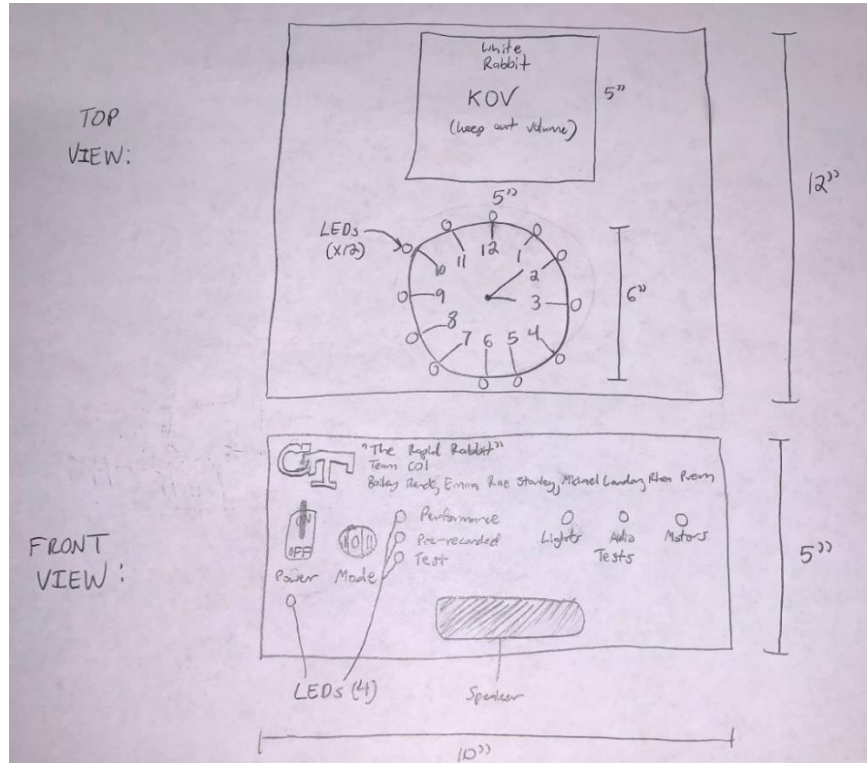 TOP
VIEW:
White
Rabbit
KOV
(keep out volume)
5"
5"
12"
LEDs
(x12)
12
1
2
3
4
5
6
7
8
9
10
11
6"
FRONT
VIEW:
GT
"The Rapid Rabbit"
Team C01
Bailey Emma Rae Michael Landon,
ON
OFF
Power
Mode
Performance
Pre-recorded
Test
Lights
Audio
Motors
Tests
5"
LEDs (4)
Speaker
10"